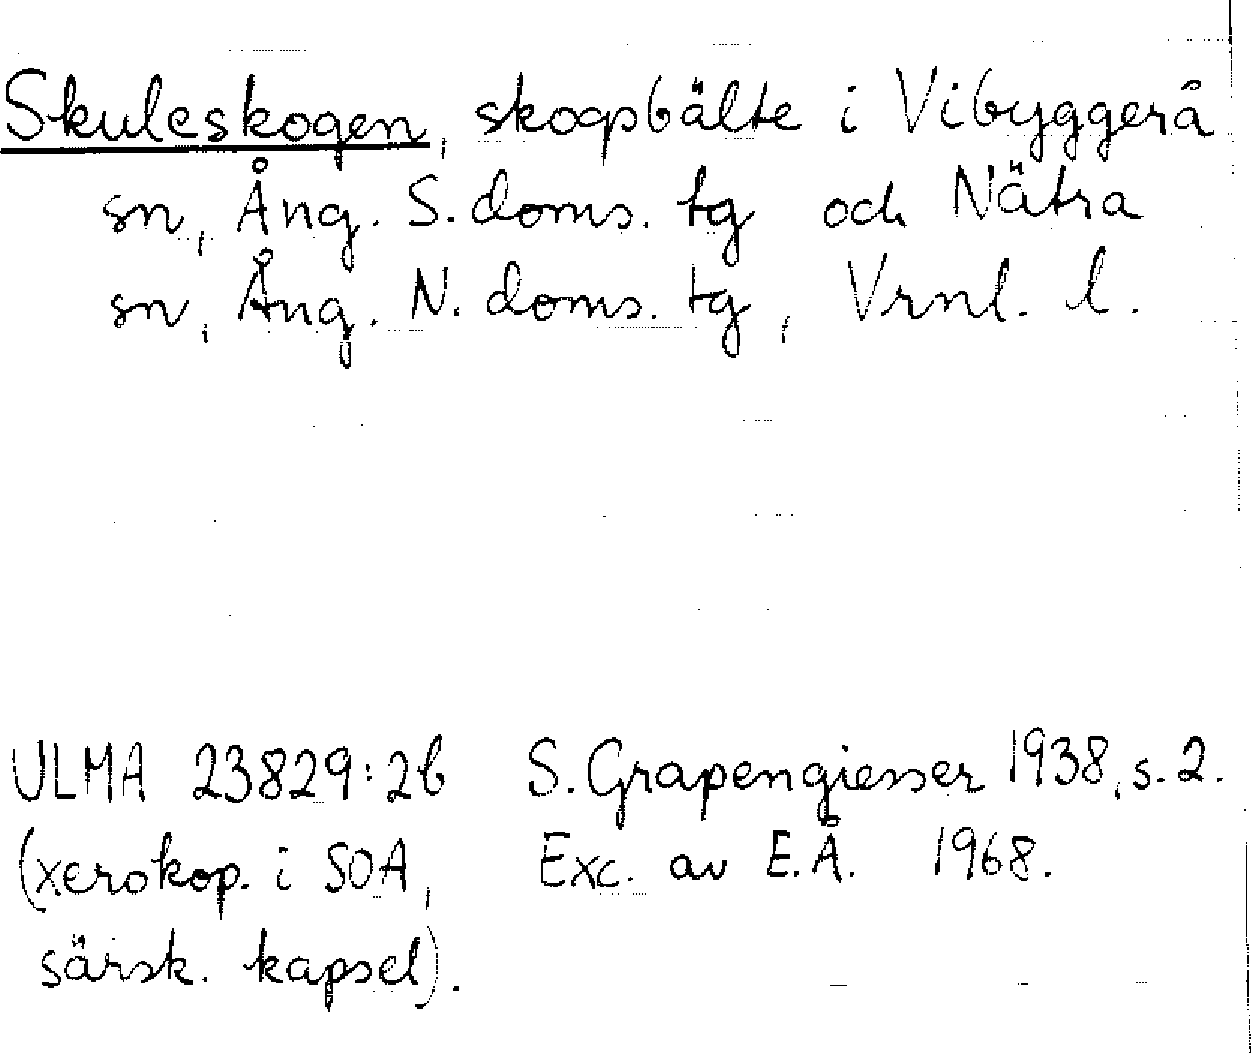 Skuleskogen, skogsbälte i Vibyggerå
sn, Ång. S. doms. tg och Nätra
sn, Ång. N. doms. tg, Vrnl. l.
ULMA 23829:2b S. Grapengiesser 1938, s. 2.
(xerokop. i SOA, Exc. av E.Å. 1968.
särsk. kapsel).